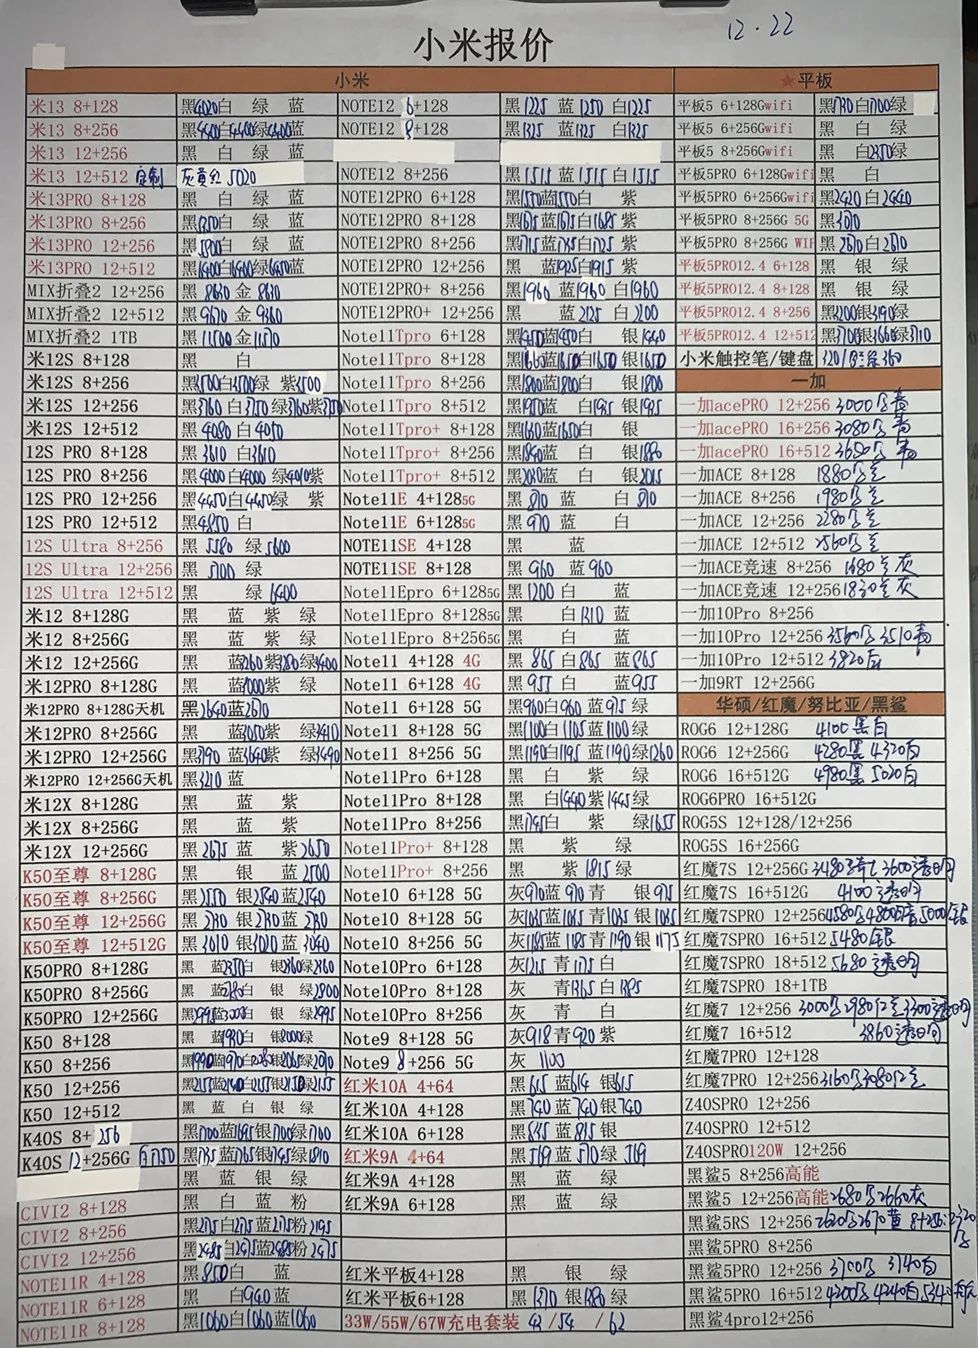 12.22
小米报价
小米 ★平板
米13 8+128 黑4020白 绿 蓝 NOTE12 6+128 黑1225 蓝1250 白1225 平板5 6+128Gwifi 黑1730白1700绿
米13 8+256 NOTE12 8+128 黑1325 蓝1325 白1325 平板5 6+256Gwifi 黑 白 绿
米13 12+256 黑 白 绿 蓝 平板5 8+256Gwifi 黑 白2350绿
米13 12+512 定制 灰黄红 5020 NOTE12 8+256 黑1515 蓝1515 白1515 平板5PRO 6+128Gwifi 黑 白
米13PRO 8+128 黑 白 绿 蓝 NOTE12PRO 6+128 黑1550蓝1550白 紫 平板5PRO 6+256Gwifi 黑2420白2440
米13PRO 8+256 NOTE12PRO 8+128 黑1675蓝1675白1685 紫 平板5PRO 8+256G 5G 黑3070
米13PRO 12+256 NOTE12PRO 8+256 平板5PRO 8+256G WIF 黑2670白2670
米13PRO 12+512 黑6400白6400绿6450蓝 NOTE12PRO 12+256 黑 蓝1925白1915 紫 平板5PRO12.4 6+128 黑 银 绿
MIX折叠2 12+256 黑 8630 金 8630 NOTE12PRO+ 8+256 黑1960 蓝1960 白1960 平板5PRO12.4 8+128 黑 银 绿
MIX折叠2 12+512 黑 9670 金 9360 NOTE12PRO+ 12+256 黑 蓝 2125 白 2200 平板5PRO12.4 8+256
MIX折叠2 1TB 黑 11500 金 11570 Note11Tpro 6+128 黑1450蓝1450白 银1440 平板5PRO12.4 12+512
米12S 8+128 黑 白 Note11Tpro 8+128 黑1660蓝1650白1650 银1650 小米触控笔/键盘
米12S 8+256 黑3500白3500绿 紫3500 Note11Tpro 8+256 黑1800蓝1800白 银1800 一加
米12S 12+256 黑3760 白3750 绿3760紫3750 Note11Tpro 8+512 黑1950蓝 白1935 银1935 一加acePRO 12+256 3000 青
米12S 12+512 黑 4080 白 4050 Note11Tpro+ 8+128 黑1650蓝1650白 银 一加acePRO 16+256 3080 青
12S PRO 8+128 黑 3610 白3610 Note11Tpro+ 8+256 黑1890蓝 白 银1880 一加acePRO 16+512 3650 青
12S PRO 8+256 黑4000 白4000 绿4010紫 Note11Tpro+ 8+512 黑2020蓝 白 银2015 一加ACE 8+128 1880
12S PRO 12+256 黑4450白4450绿 紫 Note11E 4+1285G 黑 870 蓝 白 870 一加ACE 8+256 1980
12S PRO 12+512 黑4850 白 Note11E 6+1285G 黑 970 蓝 白 一加ACE 12+256 2280
12S Ultra 8+256 黑 5580 绿5600 NOTE11SE 4+128 黑 蓝 一加ACE 12+512 2560
12S Ultra 12+256 黑 5700 绿 NOTE11SE 8+128 黑 960 蓝 960 一加ACE竞速 8+256 1680 灰
12S Ultra 12+512 黑 绿 6400 Note11Epro 6+1285G 黑 1200 白 蓝 一加ACE竞速 12+256 1830 灰
米12 8+128G 黑 蓝 紫 绿 Note11Epro 8+1285G 黑 白1310 蓝 一加10Pro 8+256
米12 8+256G 黑 蓝 紫 绿 Note11Epro 8+2565G 黑 白 蓝 一加10Pro 12+256 3560 3510青
米12 12+256G 黑 蓝3260紫3280绿3400 Note11 4+128 4G 黑 865 白865 蓝865 一加10Pro 12+512 3820白
米12PRO 8+128G 黑 紫 绿 Note11 6+128 4G 黑 955 白 蓝955 一加9RT 12+256G
米12PRO 8+128G天机 黑2640蓝2670 Note11 6+128 5G 黑960白960 蓝975 绿 华硕/红魔/努比亚/黑鲨
米12PRO 8+256G Note11 8+128 5G 黑1100白1105蓝1100绿 ROG6 12+128G 4100 黑白
米12PRO 12+256G Note11 8+256 5G 黑1190白1195 蓝1190绿1260 ROG6 12+256G 4280黑 4320白
米12PRO 12+256G天机 黑3210 蓝 Note11Pro 6+128 黑 白 紫 绿 ROG6 16+512G 4980黑 5020白
米12X 8+128G 黑 蓝 紫 Note11Pro 8+128 黑 白1440紫1445绿 ROG6PRO 16+512G
米12X 8+256G 黑 蓝 紫 Note11Pro 8+256 黑1745白 紫 绿1655 ROG5S 12+128/12+256
米12X 12+256G 黑 2675 蓝 紫2650 Note11Pro+ 8+128 黑 紫 绿 ROG5S 16+256G
K50至尊 8+128G 黑 银 蓝 2500 Note11Pro+ 8+256 黑 紫 1815绿 红魔7S 12+256G
K50至尊 8+256G 黑 2550 银2540蓝 2540 Note10 6+128 5G 灰970蓝 970 青 银 975 红魔7S 16+512G 4100 透明
K50至尊 12+256G 黑 2730 银2730蓝 2730 Note10 8+128 5G 灰1035蓝1035 青1035 银1035 红魔7SPRO 12+256
K50至尊 12+512G 黑 3010 银3020 蓝3040 Note10 8+256 5G 灰1185蓝 1185 青1190 银1175 红魔7SPRO 16+512 5480银
K50PRO 8+128G 黑 蓝2350白 银2360绿2360 Note10Pro 6+128 灰1215 青1175白 红魔7SPRO 18+512 5680 透明
K50PRO 8+256G 黑 蓝2780白 银 绿2800 Note10Pro 8+128 灰 青1365 白1385 红魔7SPRO 18+1TB
K50PRO 12+256G 黑2995蓝3000白 银 绿2995 Note10Pro 8+256 灰 青 白 红魔7 12+256
K50 8+128 黑 蓝1980白 银2000绿 Note9 8+128 5G 灰918青920紫 红魔7 16+512 3860透明
K50 8+256 Note9 8+256 5G 灰 1100 红魔7PRO 12+128
K50 12+256 红米10A 4+64 黑615蓝614 银615 红魔7PRO 12+256
K50 12+512 黑 蓝 白 银 绿 红米10A 4+128 黑740 蓝740银740 Z40SPRO 12+256
K40S 8+256 黑1700蓝1695银1700绿1700 红米10A 6+128 黑845 蓝815 银 Z40SPRO 12+512
K40S 12+256G 白1750 黑1795蓝1765银1795绿1810 红米9A 4+64 黑569蓝 570绿 569 Z40SPRO120W 12+256
黑 蓝 银 绿 红米9A 4+128 黑 蓝 绿 黑鲨5 8+256高能
CIVI2 8+128 黑 白 蓝 粉 红米9A 6+128 黑 蓝 绿 黑鲨5 12+256高能2680 2660灰
CIVI2 8+256 黑2175白2175蓝2175粉2195 黑鲨5RS 12+256
CIVI2 12+256 黑2485白2475蓝2485粉2475 黑鲨5PRO 8+256
NOTE11R 4+128 黑850白 蓝 红米平板4+128 黑 银 绿 黑鲨5PRO 12+256 3700 3740白
NOTE11R 6+128 黑 白940蓝 红米平板6+128 黑1370 银1380绿 黑鲨5PRO 16+512
NOTE11R 8+128 黑1060白1060蓝1060 33W/55W/67W充电套装 42 /54 /62 黑鲨4pro12+256